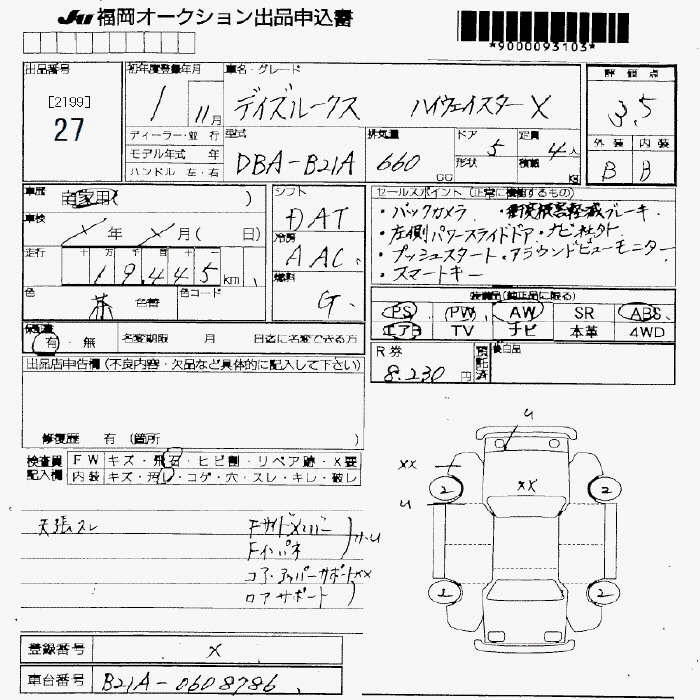 JU 福岡オークション出品申込書
*9000093103*
出品番号
[2199]
27
初年度登録年月
1 11月
車名・グレード
デイズルークス ハイウェイスターX
評価点
3.5
ディーラー・並行
モデル年式 年
ハンドル 左・右
型式
DBA-B21A
排気量
660 CC
ドア 5
形状
定員 4人
積載 KG
外装 内装
B B
車歴
自家用( )
車検
× 年 × 月( 日)
走行
十 万 千 百 十 一
1 9 4 4 5 km
色
茶 色替
色コード
シフト
DAT
冷房
AAC
燃料
G
セールスポイント (正常に機能するもの)
・バックカメラ ・衝突被害軽減ブレーキ
・左側パワースライドドア・ナビ社外
・プッシュスタート・アラウンドビューモニター
・スマートキー
装備品(純正品に限る)
PS PW AW SR ABS
エアB TV ナビ 本革 4WD
保証書
有・無
名変期限 月 日迄に名変できる方
R券
8.230円
預託済
後日品
出品店申告欄 (不良内容・欠品など具体的に記入して下さい)
修復歴 有 (箇所
検査員 FW キズ・飛石・ヒビ割・リペア跡・X要
記入欄 内装 キズ・汚れ・コゲ・穴・スレ・キレ・破レ
天張スレ Fサイドメンバー
Fインパネ 小U
コア・アッパーサポートXX
ロアサポート
U
XX
2 XX 2
U
1 2
登録番号 X
車台番号 B21A-0608786